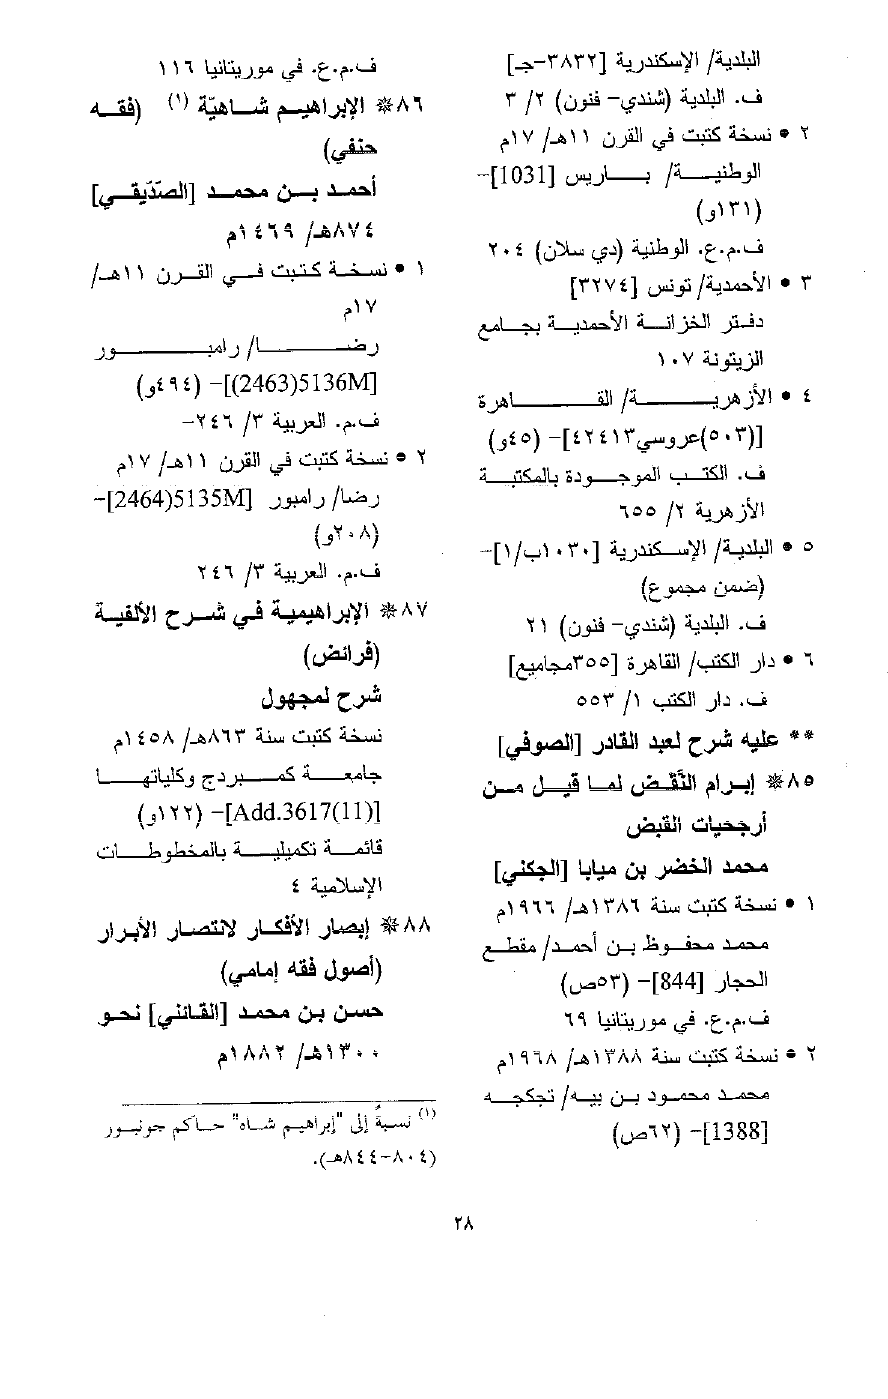 البلدية/ الإسكندرية [٣٨٣٢-جـ]
ف. البلدية (شندي- فنون) ٢/ ٣
٢ • نسخة كتبت في القرن ١١هـ/ ١٧م
الوطنية/ باريس [1031]-
(١٣١و)
ف.م.ع. الوطنية (دي سلان) ٢٠٤
٣ • الأحمدية/ تونس [٣٢٧٤]
دفتر الخزانة الأحمدية بجامع
الزيتونة ١٠٧
٤ • الأزهرية/ القاهرة
[(٥٠٣)عروسي٤٢٤١٣]- (٤٥و)
ف. الكتب الموجودة بالمكتبة
الأزهرية ٢/ ٦٥٥
٥ • البلدية/ الإسكندرية [١٠٣٠ب/١]-
(ضمن مجموع)
ف. البلدية (شندي- فنون) ٢١
٦ • دار الكتب/ القاهرة [٣٥٥مجاميع]
ف. دار الكتب ١/ ٥٥٣
** عليه شرح لعبد القادر [الصوفي]
٨٥* إبرام النَّقْض لما قيل من
أرجحيات القبض
محمد الخضر بن ميابا [الجكني]
١ • نسخة كتبت سنة ١٣٨٦هـ/ ١٩٦٦م
محمد محفوظ بن أحمد/ مقطع
الحجار [844]- (٥٣ص)
ف.م.ع. في موريتانيا ٦٩
٢ • نسخة كتبت سنة ١٣٨٨هـ/ ١٩٦٨م
محمد محمود بن بيه/ تجكجه
[1388]- (٦٢ص)
ف.م.ع. في موريتانيا ١١٦
٨٦* الإبراهيم شاهيّة (١) (فقه
حنفي)
أحمد بن محمد [الصّدّيقي]
٨٧٤هـ/ ١٤٦٩م
١ • نسخة كتبت في القرن ١١هـ/
١٧م
رضا/ رامبور
[(2463)5136M]- (٤٩٤و)
ف.م. العربية ٣/ ٢٤٦-
٢ • نسخة كتبت في القرن ١١هـ/ ١٧م
رضا/ رامبور [2464)5135M]-
(٢٠٨و)
ف.م. العربية ٣/ ٢٤٦
٨٧* الإبراهيمية في شرح الألفية
(فرائض)
شرح لمجهول
نسخة كتبت سنة ٨٦٣هـ/ ١٤٥٨م
جامعة كمبردج وكلياتها
[Add.3617(11)]- (١٢٢و)
قائمة تكميلية بالمخطوطات
الإسلامية ٤
٨٨* إبصار الأفكار لانتصار الأبرار
(أصول فقه إمامي)
حسن بن محمد [القائني] نحو
١٣٠٠هـ/ ١٨٨٢م
(١) نسبةً إلى "إبراهيم شاه" حاكم جونبور
(٨٠٤-٨٤٤هـ).
٢٨